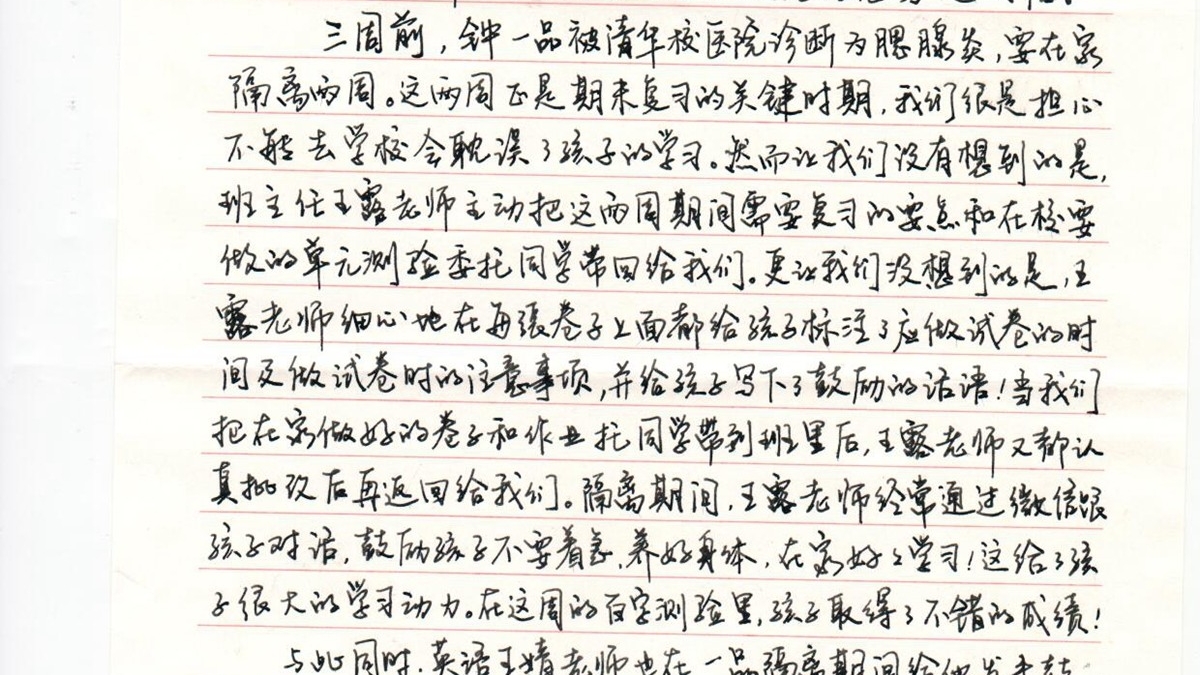 三周前，钟一品被清华校医院诊断为腮腺炎，要在家
隔离两周。这两周正是期末复习的关键时期，我们很是担心
不能去学校会耽误了孩子的学习。然而让我们没有想到的是，
班主任王露老师主动把这两周期间需要复习的要点和在校要
做的单元测验委托同学带回给我们。更让我们没想到的是，王
露老师细心地在每张卷子上面都给孩子标注了应做试卷的时
间及做试卷时的注意事项，并给孩子写下了鼓励的话语！当我们
把在家做好的卷子和作业托同学带到班里后，王露老师又都认
真批改后再返回给我们。隔离期间，王露老师经常通过微信跟
孩子对话，鼓励孩子不要着急，养好身体，在家好々学习！这给了孩
子很大的学习动力。在这周的百字测验里，孩子取得了不错的成绩！
与此同时，英语王婧老师也在一品隔离期间给他发来